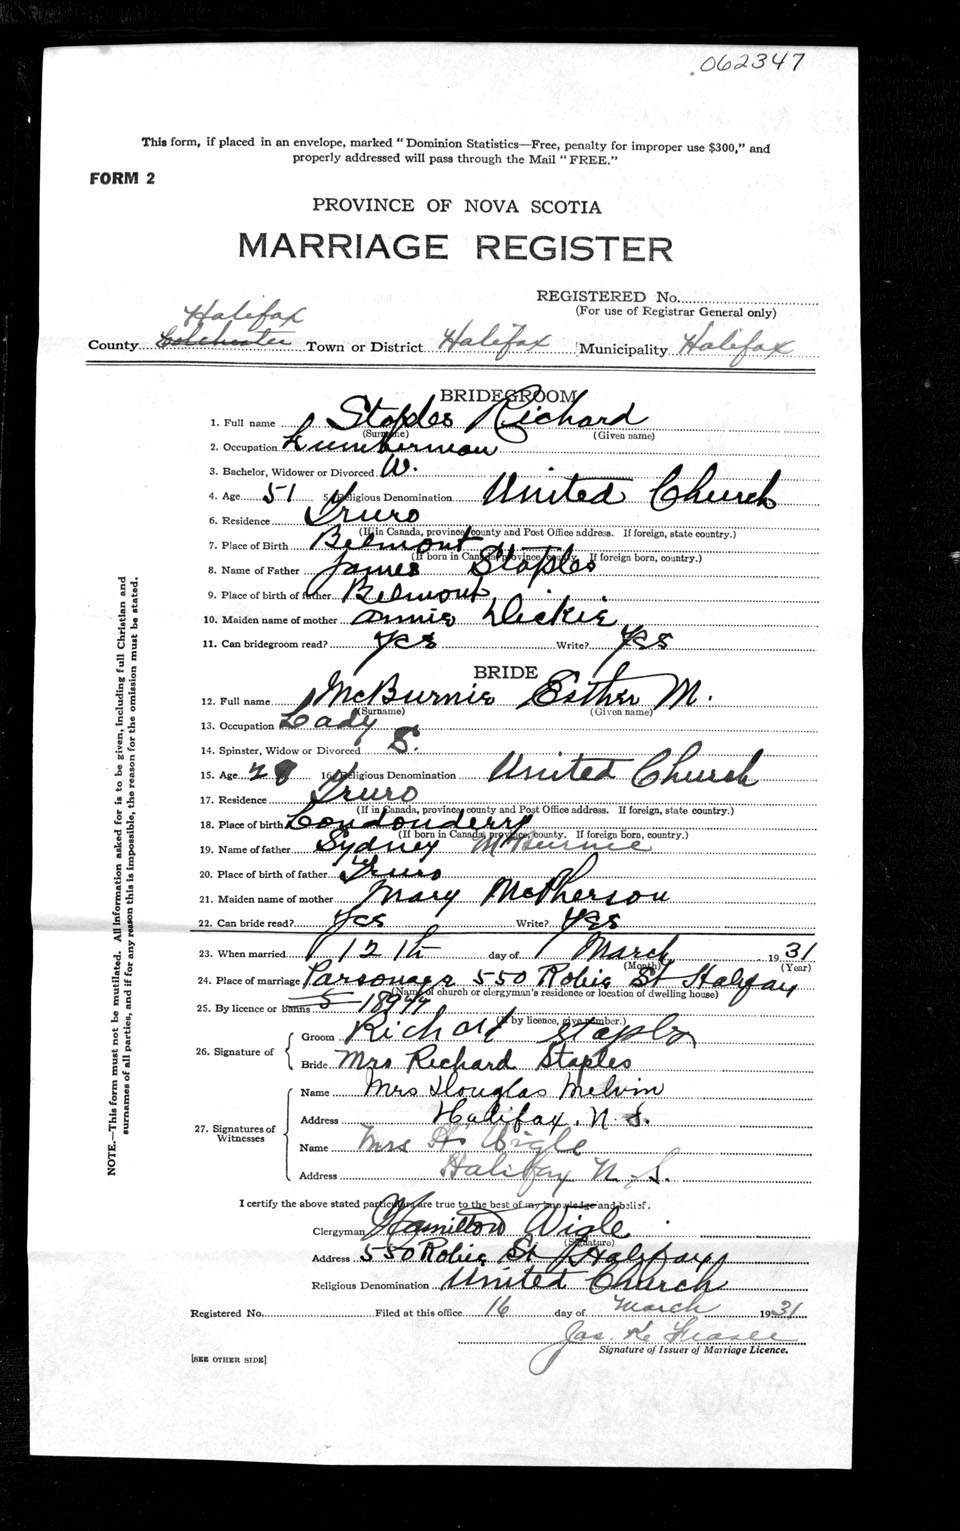 062347
This form, if placed in an envelope, marked "Dominion Statistics—Free, penalty for improper use $300," and
properly addressed will pass through the Mail "FREE."
FORM 2
PROVINCE OF NOVA SCOTIA
MARRIAGE REGISTER
REGISTERED No.
(For use of Registrar General only)
Halifax
County Colchester Town or District Halifax Municipality Halifax
BRIDEGROOM
1. Full name Staples Richard
(Surname) (Given name)
2. Occupation Lumberman
3. Bachelor, Widower or Divorced W.
4. Age 51 5. Religious Denomination United Church
6. Residence Truro
(If in Canada, province, county and Post Office address. If foreign, state country.)
7. Place of Birth Belmont
(If born in Canada, province, county. If foreign born, country.)
8. Name of Father James Staples
9. Place of birth of father Belmont
10. Maiden name of mother Annie Dickie
11. Can bridegroom read? Yes Write? Yes
BRIDE
12. Full name McBurnie Esther M.
(Surname) (Given name)
13. Occupation Lady
14. Spinster, Widow or Divorced S.
15. Age 28 16. Religious Denomination United Church
17. Residence Truro
(If in Canada, province, county and Post Office address. If foreign, state country.)
18. Place of birth Londonderry
(If born in Canada, province, county. If foreign born, country.)
19. Name of father Sydney McBurnie
20. Place of birth of father Truro
21. Maiden name of mother Mary McPherson
22. Can bride read? Yes Write? Yes
23. When married 12th day of March 1931
(Month) (Year)
24. Place of marriage Parsonage 550 Robie St Halifax
(Name of church or clergyman's residence or location of dwelling house)
25. By licence or banns 18944
(If by licence, give number.)
26. Signature of Groom Richard Staples
Bride Mrs Richard Staples
27. Signatures of Witnesses
Name Mrs Douglas Melvin
Address Halifax, N.S.
Name Mrs H. Wigle
Address Halifax N.S.
I certify the above stated particulars are true to the best of my knowledge and belief.
Clergyman Hamilton Wigle
(Signature)
Address 550 Robie St Halifax
Religious Denomination United Church
Registered No. Filed at this office 16 day of March 1931
Jas. K. Fraser
Signature of Issuer of Marriage Licence.
[SEE OTHER SIDE]
NOTE.—This form must not be mutilated. All information asked for is to be given, including full Christian and
surnames of all parties, and if for any reason this is impossible, the reason for the omission must be stated.